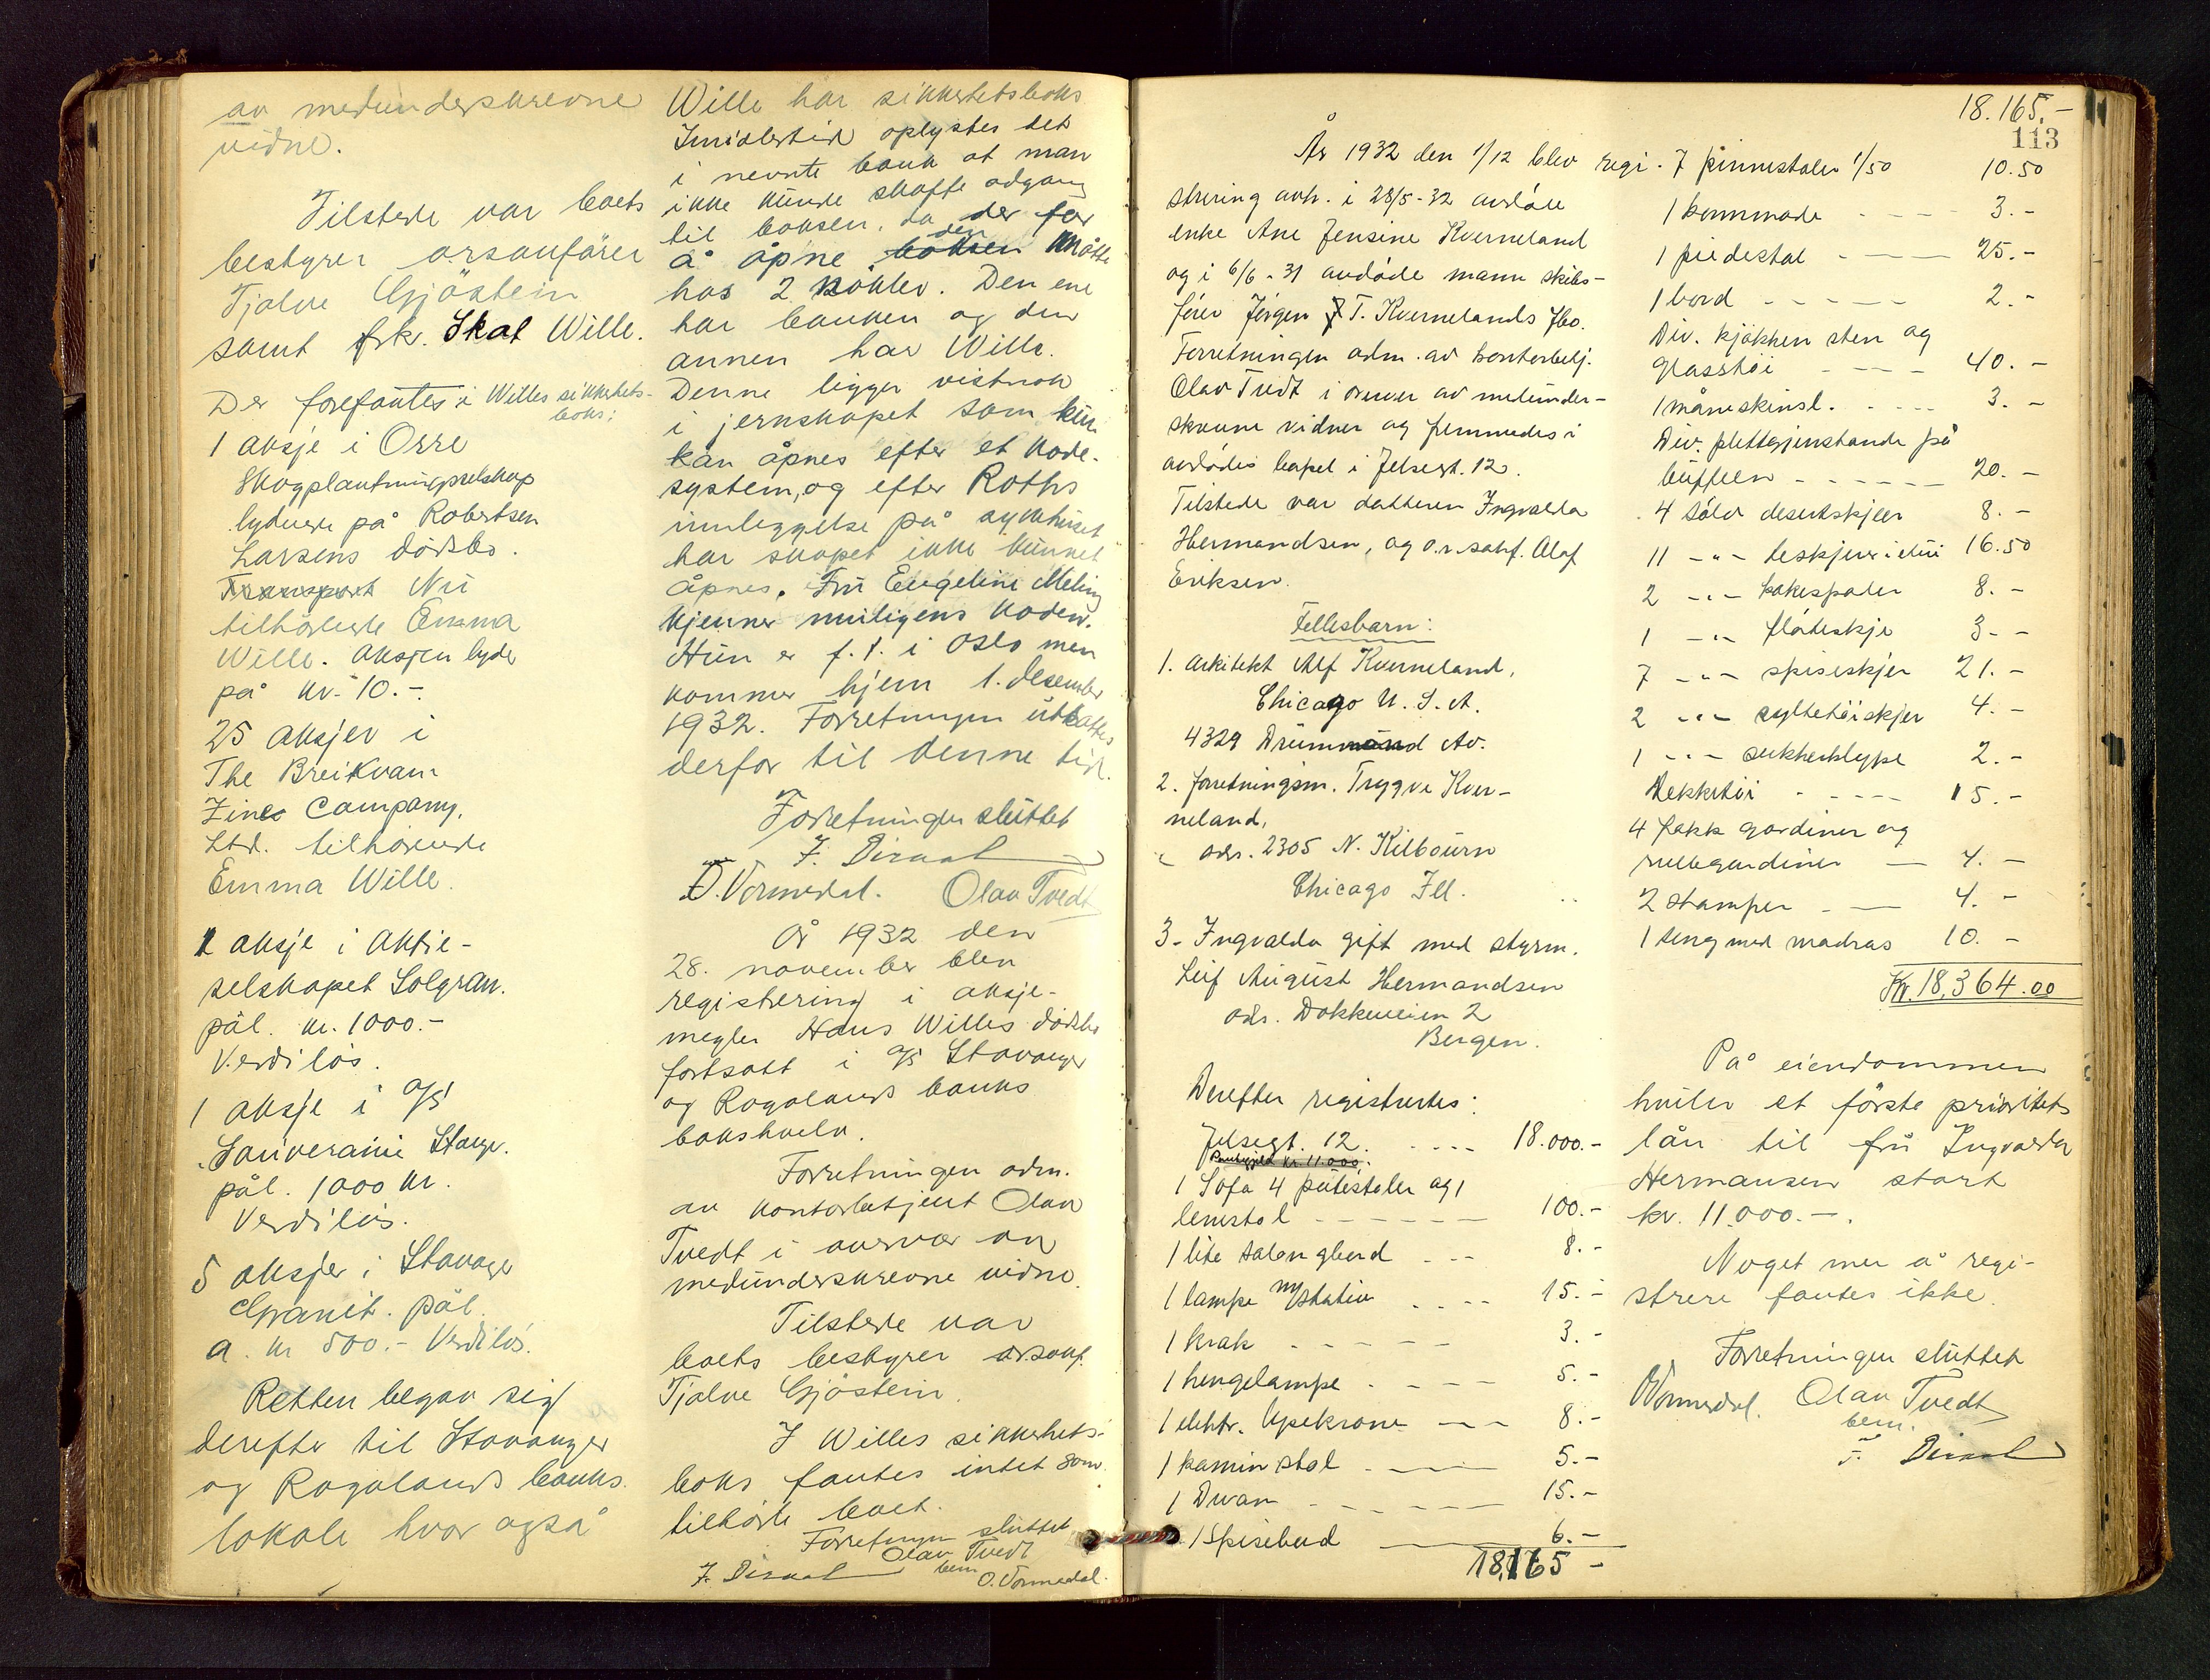 av medunderskrevne
vidne.
Tilstede var boets
bestyrer orsanfører
Tjalve Gjöstein
samt frk. Skat Wille.
Der forefantes i Willes sikkerhets-
boks:
1 aksje i Orre
Skogplantningsselskap
lydende på Robertsen
Larsens dödsbo.
Transport Nu
tilhörende Emma
Wille. Aksjen lyder
på kr. 10.-
25 aksjer i
The Breikvam
Zines Company,
Ltd. tilhörende
Emma Wille.
1 aksje i Aktie-
selskapet Solgran.
pål. kr. 1000.-
Verdilös.
1 aksje i A/S
Souveraine Stavgr.
pål. 1000 kr.
Verdilös.
5 aksjer i Stavanger
Granit. pål.
a. kr 500.- Verdilös.
Retten begav sig
derefter til Stavanger
og Rogalands banks
lokale hvor også
Wille har sikkerhetsboks
Imidlertid oplystes det
i nevnte bank at man
ikke kunde skaffe adgang
til boksen, da der for
å åpne boksen den måtte
has 2 nökler. Den ene
har banken og den
annen har Wille.
Denne ligger vistnok
i jernskapet som kun
kan åpnes efter et kode-
system, og efter Roths
innleggelse på sykehuset
har skapet ikke kunnet
åpnes. Fru Engeline Meling
kjenner muligens koden.
Hun er f.t. i Oslo men
kommer hjem 1. desember
1932. Forretningen utsattes
derfor til denne tid.
Forretningen sluttet
F. Dirdal
O. Vormedal. Olav Tvedt
År 1932 den
28. november blev
registrering i aksje-
megler Hans Willes dödsbo
fortsatt i A/S Stavanger
og Rogalands banks
bokshvelv.
Forretningen adm.
av kontorbetjent Olav
Tvedt i overvær av
medunderskrevne vidne.
Tilstede var
boets bestyrer orsanf.
Tjalve Gjöstein.
I Willes sikkerhets-
boks fantes intet som
tilhörte boet.
Forretningen sluttet
Olav Tvedt
bem.
F. Dirdal O. Vormedal.
113
År 1932 den 1/12 blev regi-
strering avh. i 28/5-32 avdöde
enke Ane Jensine Kverneland
og i 6/6-31 avdöde mann skibs-
förer Jörgen T. Kvernelands fbo.
Forretningen adm. av kontorbetj.
Olav Tvedt i overvær av medunder-
skrevne vidner og fremmedes i
avdödes bopel i Jelsegt. 12.
Tilstede var datteren Ingvalda
Hermandsen, og o.r.sakf. Olaf
Eriksen.
Fellesbarn:
1. Arkitekt Alf Kverneland,
Chicago U.S.A.
4329 Drummond Av.
2. forretningsm. Trygve Kver-
neland,
adr. 2305 N. Kilbourn
Chicago Ill.
3- Ingvalda gift med styrm.
Leif August Hermandsen
adr. Dokkeveien 2
Bergen.
Derefter registrertes:
Jelsegt. 12. 18.000.-
Panthgjeld kr. 11.000.-
1 Sofa 4 putestoler og 1
lenstol 100.-
1 lite salongbord 8.-
1 lampe m/stativ 15.-
1 krak 3.-
1 hengelampe 5.-
1 elektr. lysekrone 8.-
1 kamin stol 5.-
1 Divan 15.-
1 Spisebord 6.-
18.165 -
18.165.-
7 pinnestoler 1/50 10.50
1 kommode 3.-
1 piedestal 25.-
1 bord 2.-
Div. kjökken sten og
glasstöi 40.-
1 måneskinsl. 3.-
Div. plettgjenstande på
buffeen 20.-
4 sölv desertskjeer 8.-
11 -"- teskjeer i etui 16.50
2 -"- kakespader 8.-
1 -"- flöteskje 3.-
7 -"- spiseskjer 21.-
2 -"- syltetöiskjer 4.-
1 -"- sukkerklype 2.-
Dekketöi 15.-
4 fakk gardiner og
rullegardiner 4.-
2 stamper 4.-
1 seng med madras 10.-
Kr. 18,364.00
På eiendommen
hviler et förste prioritets
lån til fru Ingvalda
Hermansen stort
kr. 11.000.-.
Noget mer å regi-
strere fantes ikke.
Forretningen sluttet
O Vormedal. Olav Tvedt
bem.
F. Dirdal